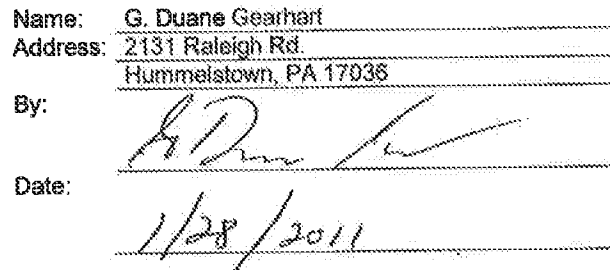 Name: G. Duane Gearhart
Address: 2131 Raleigh Rd.
Hummelstown, PA 17036
By:
Date: 1/28/2011